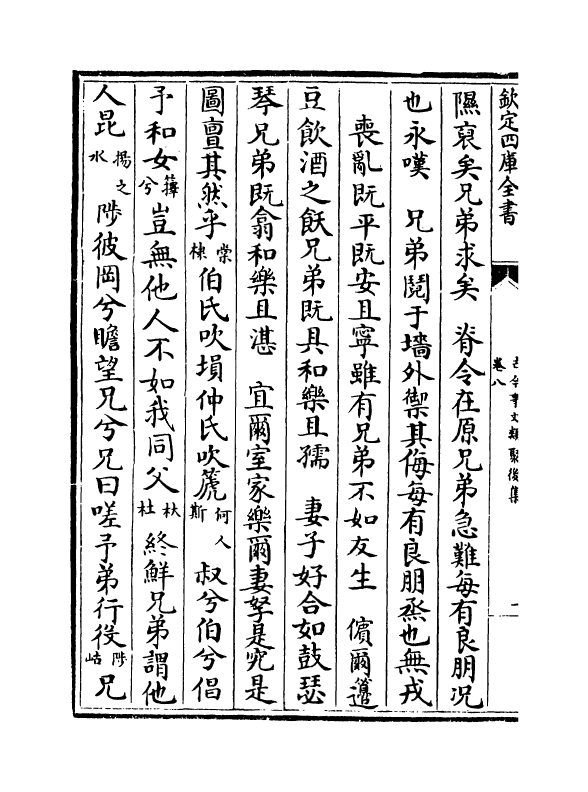 欽定四庫全書
古今事文類聚後集
卷八
二
隰裒矣兄弟求矣 脊令在原兄弟急難每有良朋况
也永嘆 兄弟鬩于墻外禦其侮每有良朋烝也無戎
喪亂既平既安且寧雖有兄弟不如友生 儐爾籩
豆飲酒之飫兄弟既具和樂且孺 妻子好合如鼓瑟
琴兄弟既翕和樂且湛 宜爾室家樂爾妻孥是究是
圖亶其然乎棠棣 伯氏吹塤仲氏吹篪何人斯 叔兮伯兮倡
予和女蘀兮 豈無他人不如我同父杕杜 終鮮兄弟謂他
人昆揚之水 陟彼岡兮瞻望兄兮兄曰嗟予弟行役陟岵 兄